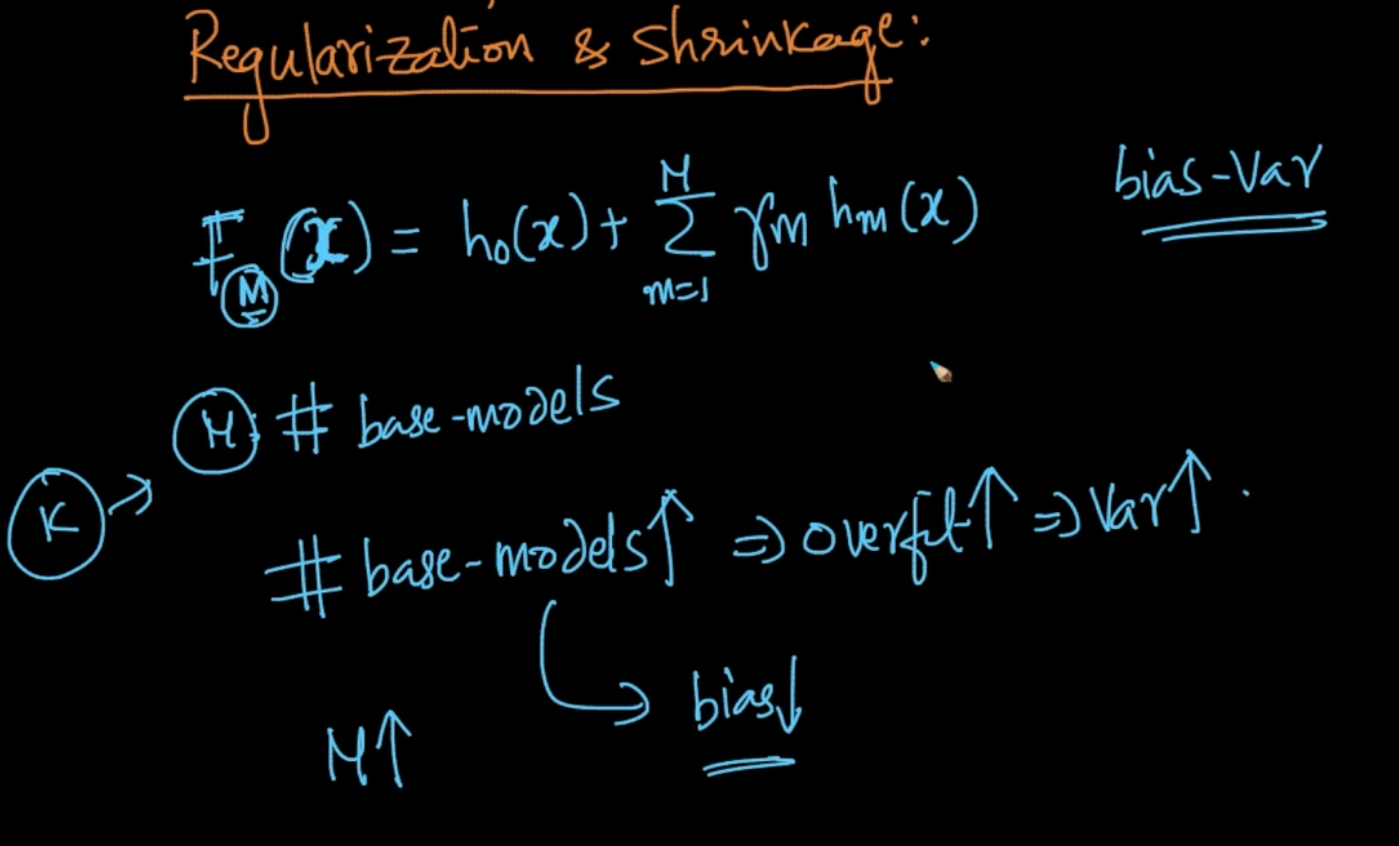 Regularization & Shrinkage:
F_M(x) = h₀(x) + Σ_{m=1}^{M} γ_m h_m(x)
bias-Var
M: # base-models
K →
# base-models↑ ⇒ overfit↑ ⇒ Var↑.
↳ bias↓
M↑